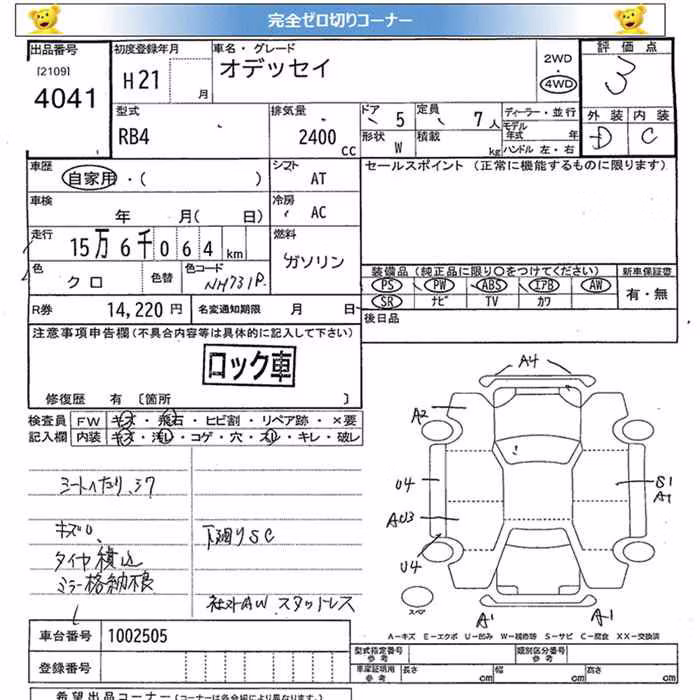 完全ゼロ切りコーナー
出品番号
[2109]
4041
初度登録年月
H21 月
車名・グレード
オデッセイ
2WD
4WD
評価点
3
外装 内装
D C
型式
RB4
排気量
2400 cc
ドア 5
形状 W
定員 7人
積載 kg
ディーラー・並行
モデル年式 年
ハンドル 左・右
車歴
自家用・( )
シフト
AT
セールスポイント (正常に機能するものに限ります)
車検
年 月( 日)
冷房
AC
走行
15万6千064km
燃料
ガソリン
色
クロ
色替
色コード
NH731P
装備品 (純正品に限り○をつけてください)
PS PW ABS エアB AW
SR ナビ TV カワ
新車保証書
有・無
R券
14,220 円
名変通知期限 月 日
後日品
注意事項申告欄(不具合内容等は具体的に記入して下さい)
ロック車
修復歴 有 〔箇所 〕
検査員
記入欄
FW キズ・飛石・ヒビ割・リペア跡・×要
内装 キズ・汚レ・コゲ・穴・スレ・キレ・破レ
キズ
タイヤ積込
ミラー格納不良
下廻りSC
社外AW スタットレス
A4
A2
U4
AU3
U4
S1
A1
A1
A1
スペア
A－キズ E－エクボ U－凹み W－補修跡 S－サビ C－腐食 XX－交換済
車台番号
1002505
登録番号
型式指定番号
参考
類別区分番号
参考
車庫証明用
参考
長さ cm
幅 cm
高さ cm
希望出品コーナー(コーナーは各会場により異なります。)